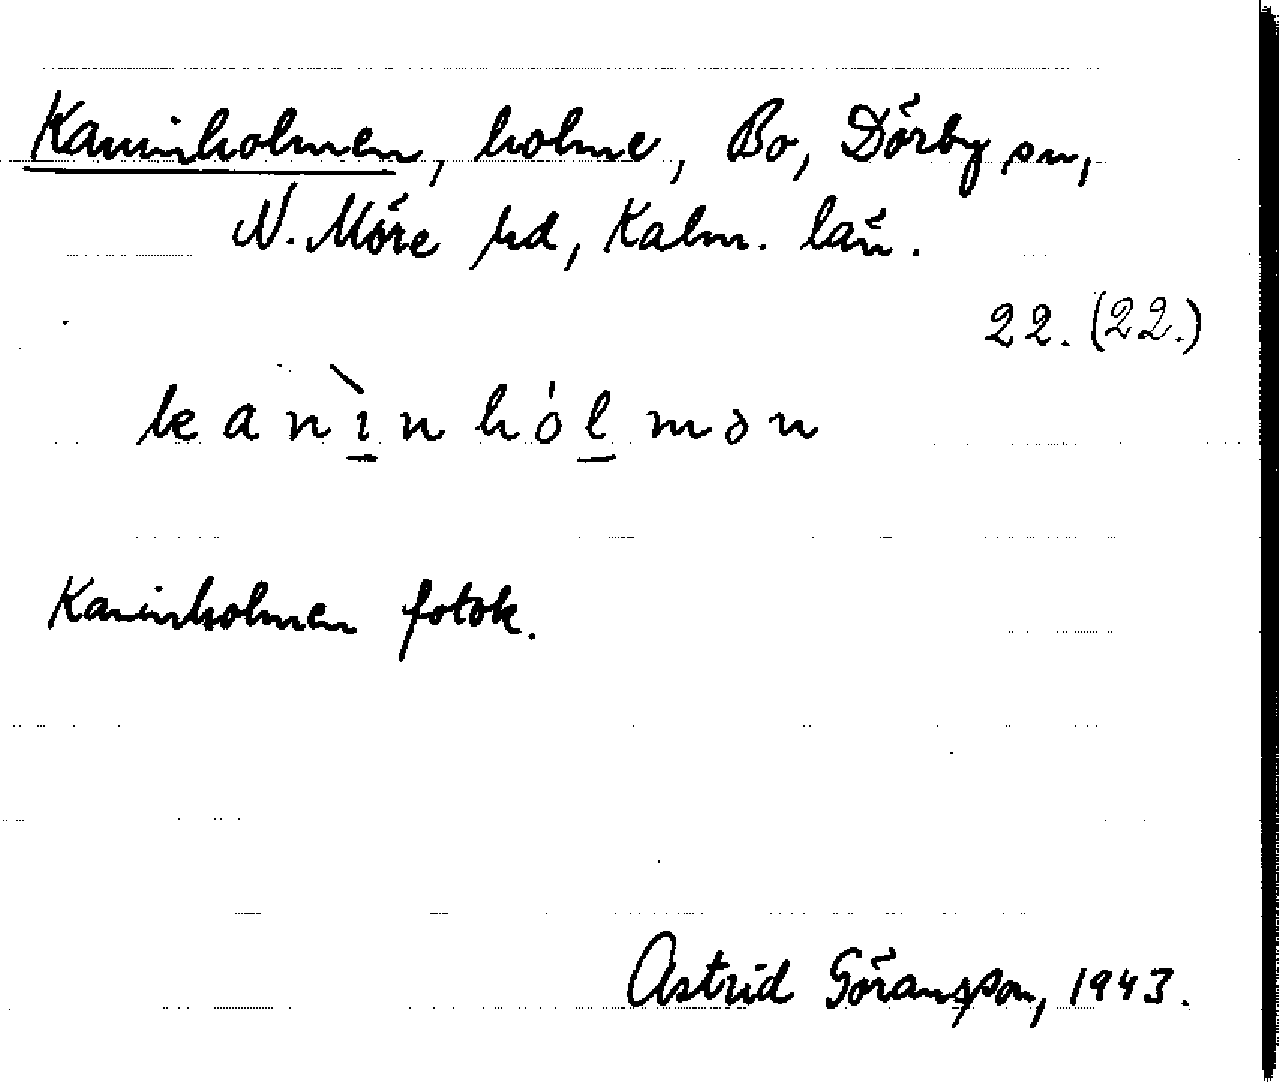 Kaninholmen, holme, Bo, Dörby sn,
N. Möre hd, Kalm. län.
22. (22.)
kanìnhólmən
Kaninholmen fotok.
Astrid Göransson, 1943.